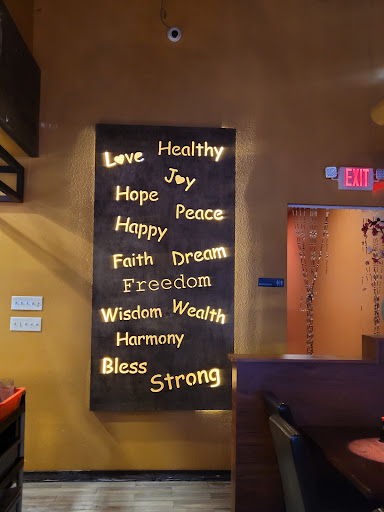 Love Healthy
Joy
Hope
Peace
Happy
Faith Dream
Freedom
Wisdom Wealth
Harmony
Bless
Strong
EXIT